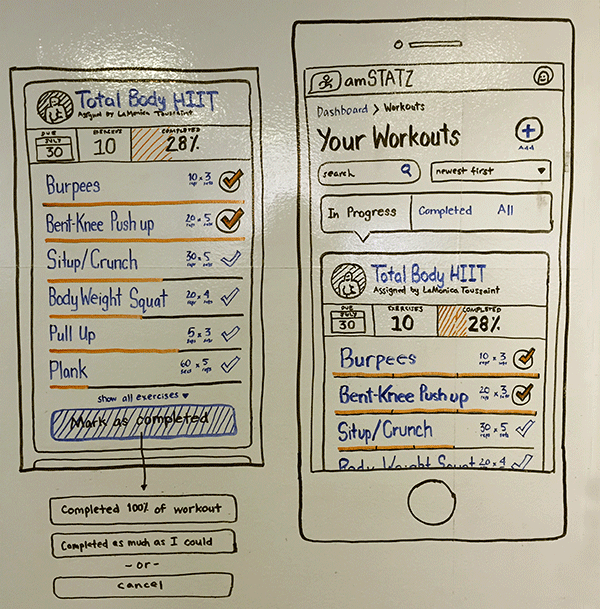 Total Body HIIT
Assigned by LaMonica Toussaint
DUE
JULY
30
EXERCISES
10
COMPLETED
28%
Burpees
10 x 3
reps sets
Bent-Knee Push up
20 x 5
reps sets
Situp/Crunch
30 x 5
reps sets
Body Weight Squat
20 x 4
reps sets
Pull Up
5 x 3
reps sets
Plank
60 x 5
secs reps
show all exercises
Mark as completed
Completed 100% of workout
Completed as much as I could
- or -
cancel
amSTATZ
Dashboard > Workouts
Your Workouts
Add
search
newest first
In Progress
Completed
All
Total Body HIIT
Assigned by LaMonica Toussaint
DUE
JULY
30
EXERCISES
10
COMPLETED
28%
Burpees
10 x 3
reps sets
Bent-Knee Push up
20 x 3
Situp/Crunch
30 x 5
reps sets
Body Weight Squat
20 x 4